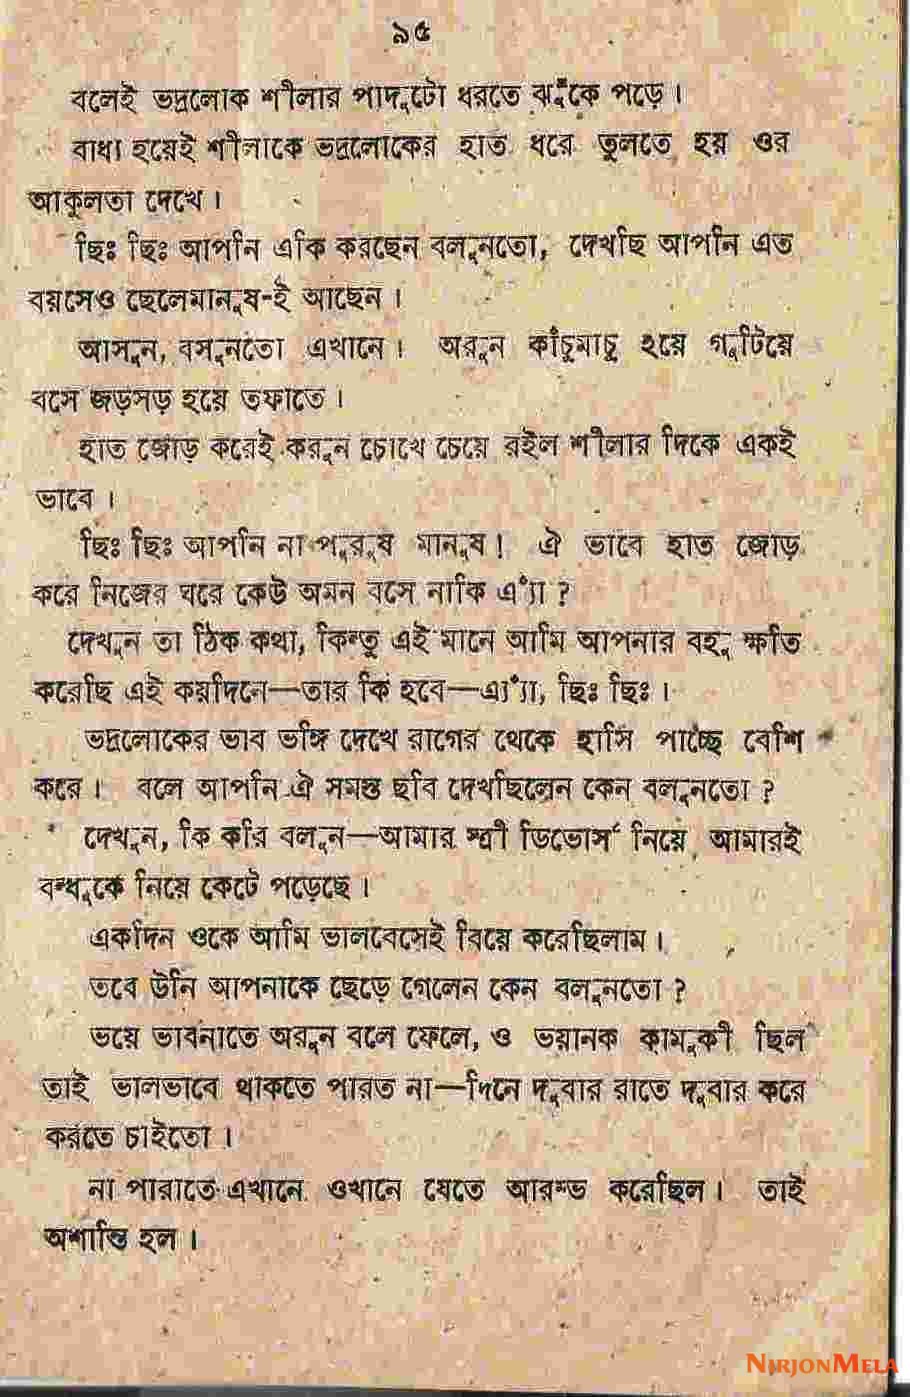 ৯৫
বলেই ভদ্রলোক শীলার পাদুটো ধরতে ঝুঁকে পড়ে।
বাধ্য হয়েই শীলাকে ভদ্রলোকের হাত ধরে তুলতে হয় ওর
আকুলতা দেখে।
ছিঃ ছিঃ আপনি একি করছেন বলুনতো, দেখছি আপনি এত
বয়সেও ছেলেমানুষ-ই আছেন।
আসুন, বসুনতো এখানে। অরুন কাঁচুমাচু হয়ে গুটিয়ে
বসে জড়সড় হয়ে তফাতে।
হাত জোড় করেই করুন চোখে চেয়ে রইল শীলার দিকে একই
ভাবে।
ছিঃ ছিঃ আপনি না পুরুষ মানুষ! ঐ ভাবে হাত জোড়
করে নিজের ঘরে কেউ অমন বসে নাকি এ্যাঁ?
দেখুন তা ঠিক কথা, কিন্তু এই মানে আমি আপনার বহু ক্ষতি
করেছি এই কয়দিনে—তার কি হবে—এ্যাঁ, ছিঃ ছিঃ।
ভদ্রলোকের ভাব ভঙ্গি দেখে রাগের থেকে হাসি পাচ্ছৈ বেশি
করে। বলে আপনি ঐ সমস্ত ছবি দেখছিলেন কেন বলুনতো?
দেখুন, কি করি বলুন—আমার স্ত্রী ডিভোর্স নিয়ে আমারই
বন্ধুকে নিয়ে কেটে পড়েছে।
একদিন ওকে আমি ভালবেসেই বিয়ে করেছিলাম।
তবে উনি আপনাকে ছেড়ে গেলেন কেন বলুনতো?
ভয়ে ভাবনাতে অরুন বলে ফেলে, ও ভয়ানক কামুকী ছিল
তাই ভালভাবে থাকতে পারত না—দিনে দুবার রাতে দুবার করে
করতে চাইতো।
না পারাতে এখানে ওখানে যেতে আরম্ভ করেছিল। তাই
অশান্তি হল।
NIRJONMELA